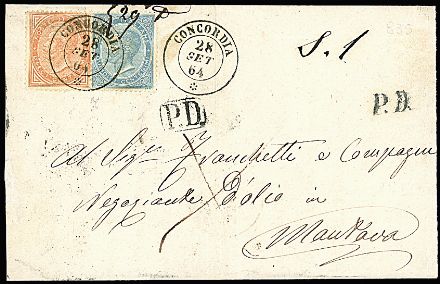 CONCORDIA
28
SET
64
CONCORDIA
28
SET
64
S. 1
P.D.
P.D.
Al Sigri Franchetti e Compagni
Negoziante d'olio in
Mantova